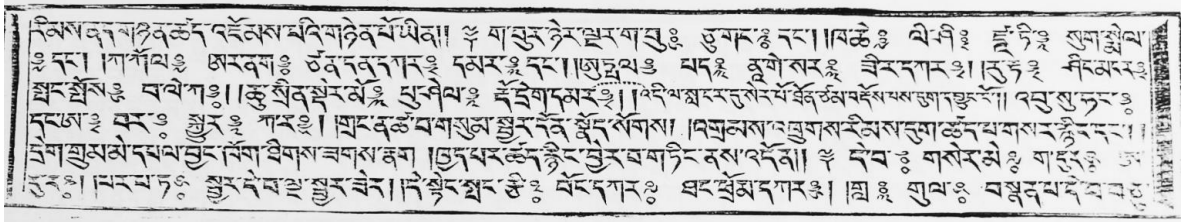 རིམས་ནད་གཉན་ཚད་འཇོམས་པའི་གཉེན་པོ་ཡིན།། ༈ ག་བུར་ཉེར་ལྔར་ག་བུ ཅུ་གང དང་། །ཁ་ཆེ ལི་ཤི ཛཱ་ཏི སུག་སྨེལ
དང་། །ཀ་ཀོལ ཨར་ནག ཙན་དན་དཀར དམར དང་། །ཨུཏྤལ པད ནཱ་གེ་སར ཟིར་དཀར །རུ་ཏ ཤིང་མངར
སྤང་སྤོས བ་ལེ་ཀ །ཆུ་སྲིན་སྡེར་མོ པུ་ཤེལ རྡོ་དྲེག་དམར །འདི་ལ་སྨྱང་ར་དུ་སེར་པོ་ཐོན་ཙམ་བརྡོས་པས་བྱུག་དབྱུང་ངོ་།། འབུ་སུ་ཧང
དང་ཨ བར སྐྱུར ཀར །གྲང་ན་ཚ་བ་གསུམ་སྦྱར་དོན་སྣོད་སོགས། །འགྲམས་འཁྲུགས་རིམས་དུག་ཚད་པ་གསར་རྙིང་དང་། །
དྲེག་གྲུམ་མེ་དཔལ་བྱང་ཁོག་ཐིགས་ཟགས་རྣག །ཁྱད་པར་ཚད་རྙིང་བྱེར་བ་གཏིང་ནས་འདོན།། ༈ དེ་བ གསེར་མེ ག་དུར ཨ
རུ་ར །པར་པ་ཏ སྦྱར་དེ་བ་ལྔ་སྦྱར་ཟེར། །དེ་སྟེང་སྤང་རྩི བོང་དཀར ཐང་ཕྲོམ་དཀར །གླ གུལ བསྣན་པ་དེ་བ